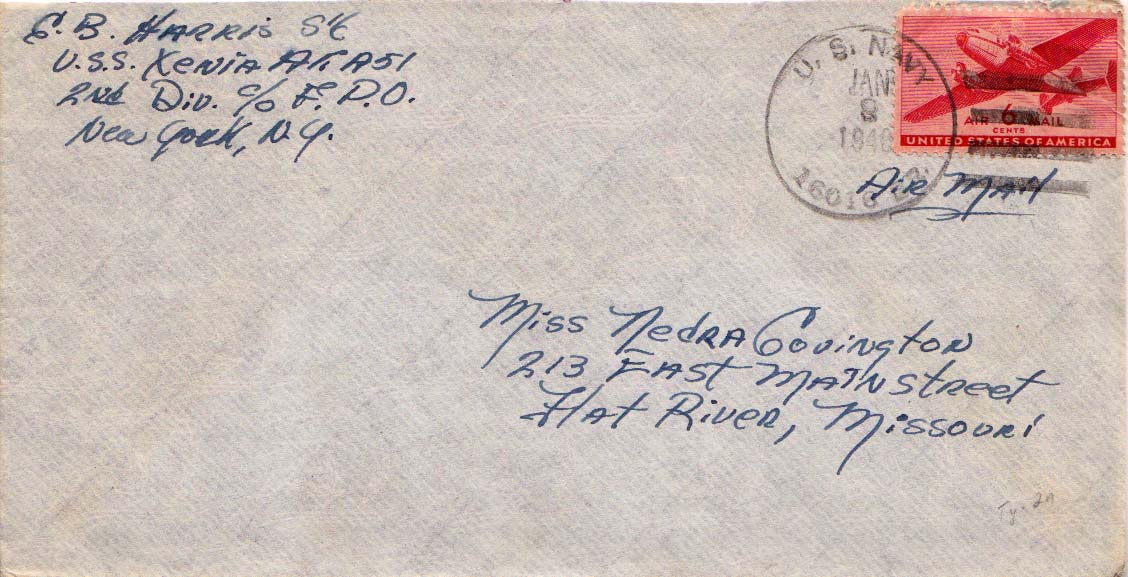 E. B. Harris S1/c
U.S.S. Xenia AKA 51
2nd Div. c/o F. P.O.
New York, N.Y.
U. S. NAVY
JAN
8
1946
16016
AIR 6 MAIL
CENTS
UNITED STATES OF AMERICA
Air Mail
Miss Nedra Covington
213 East Main Street
Flat River, Missouri
Ty. 2a